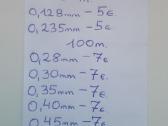 0,128mm - 5€.
0,235mm - 5€
100m.
0,28mm - 7€
0,30mm - 7€.
0,35mm - 7€.
0,40mm - 7€
0,45mm - 7€